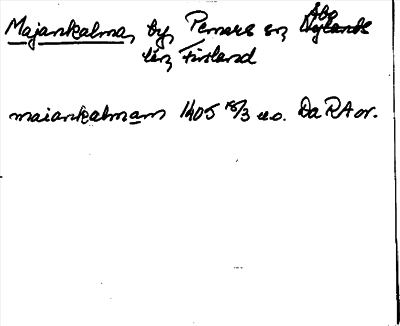 Majankalma, by, Pemars sn, Åbo
län, Finland
maiankalmam 1405 18/3 u.o. Da RA or.